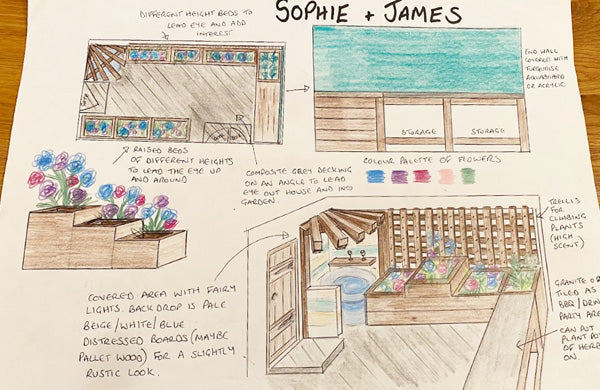 SOPHIE + JAMES
DIFFERENT HEIGHT BEDS TO
LEAD EYE AND ADD
INTEREST
END WALL
COVERED WITH
TURQUOISE
AQUABOARD
OR ACRYLIC
STORAGE
STORAGE
RAISED BEDS
OF DIFFERENT HEIGHTS
TO LEAD THE EYE UP
AND AROUND
COMPOSITE GREY DECKING
ON AN ANGLE TO LEAD
EYE OUT HOUSE AND INTO
GARDEN.
COLOUR PALETTE OF FLOWERS
TRELLIS
FOR
CLIMBING
PLANTS
(HIGH
SCENT)
COVERED AREA WITH FAIRY
LIGHTS. BACKDROP IS PALE
BEIGE/WHITE/BLUE
DISTRESSED BOARDS (MAYBE
PALLET WOOD) FOR A SLIGHTLY
RUSTIC LOOK.
GRANITE OR
TILED AS
BBQ/DRIN
PARTY ARE
CAN PUT
PLANT POT
OF HERB
ON.